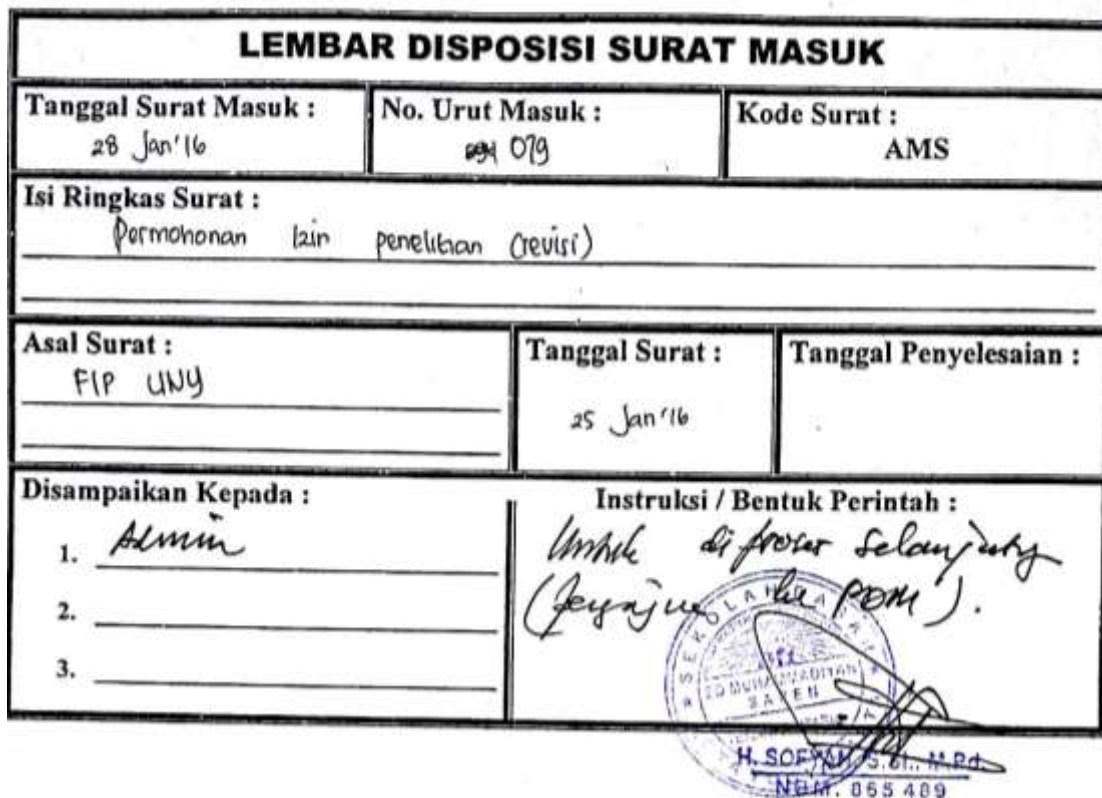 LEMBAR DISPOSISI SURAT MASUK
Tanggal Surat Masuk :
28 Jan'16
No. Urut Masuk :
079
Kode Surat :
AMS
Isi Ringkas Surat :
Permohonan Izin penelitian (revisi)
Asal Surat :
FIP UNY
Tanggal Surat :
25 Jan'16
Tanggal Penyelesaian :
Disampaikan Kepada :
1. Admin
2.
3.
Instruksi / Bentuk Perintah :
Untuk di proses
ke PDM ).
SEKOLAH DASAR
SD MUHAMMADIYAH
SAPEN
H. SOFYAN, S.Si., M.Pd.
NBM. 865 489